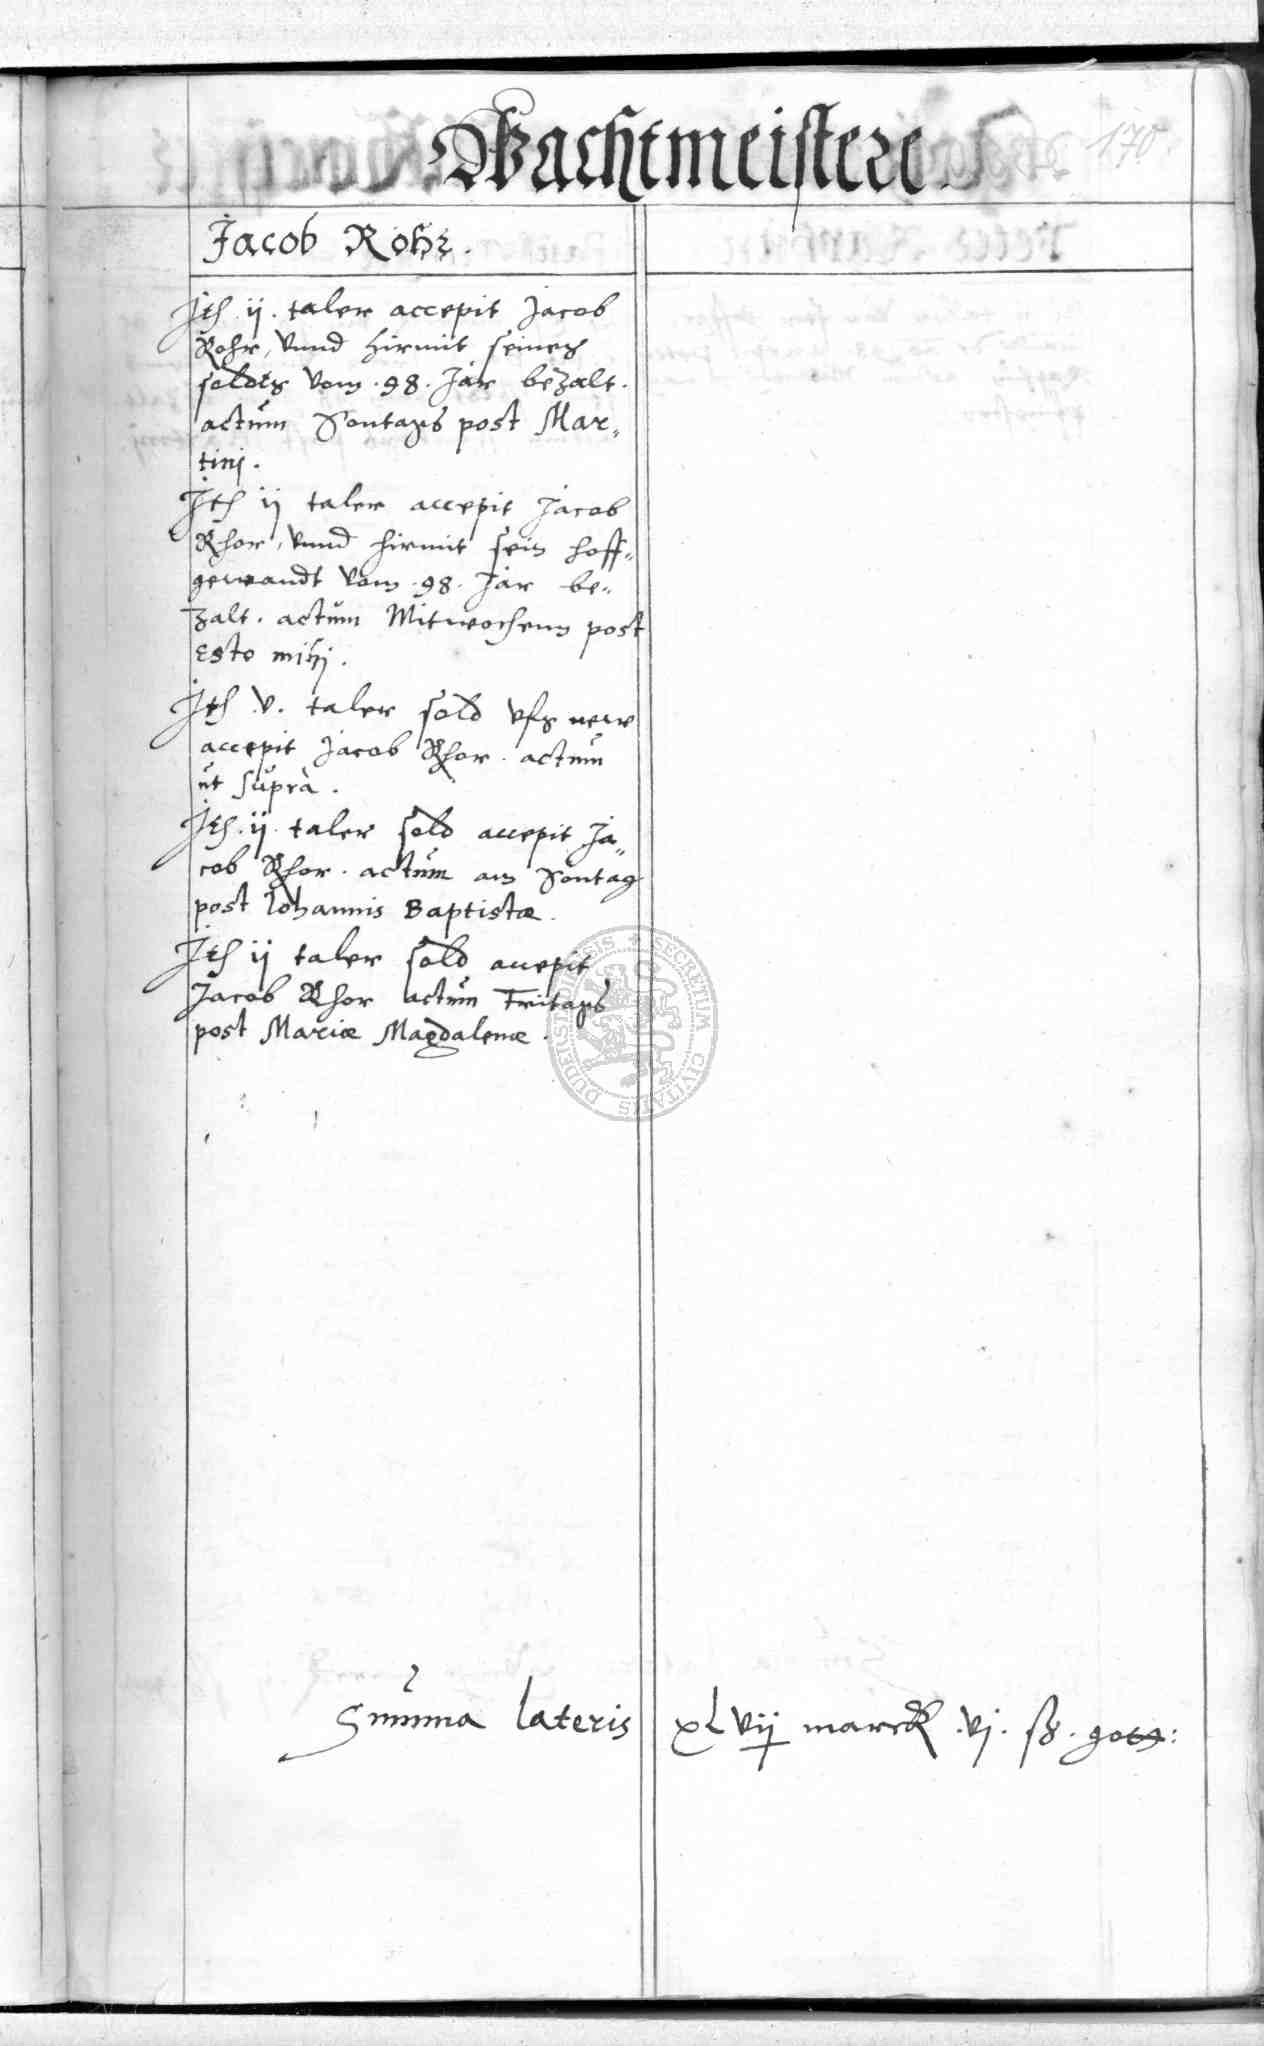 Wachtmeistere
170
Jacob Rohr.
Jt͞h ij. taler accepit Jacob
Rohr, vnnd hirmit seines
soldes vom .98. Jar bezalt.
actum Sontags post Mar„
tini.
Jt͞h ij taler accepit Jacob
Rhor, vnnd hirmit sein hoff„
gewandt vom .98. Jar be„
zalt. actum Mitwochenn post
Esto mihi.
Jt͞h .v. taler sold vfs new
accepit Jacob Rhor. actum
ut suprà.
Jt͞h .ij. taler sold accepit Ja„
cob Rhor. actum am Sontag
post Johannis Baptistæ.
Jt͞h ij taler sold accepit
Jacob Rhor actum Fritags
post Mariæ Magdalenæ.
SECRETUM CIVITATIS DUDERSTADIENSIS
Summa lateris xLvij marck .vj. ß. gots: